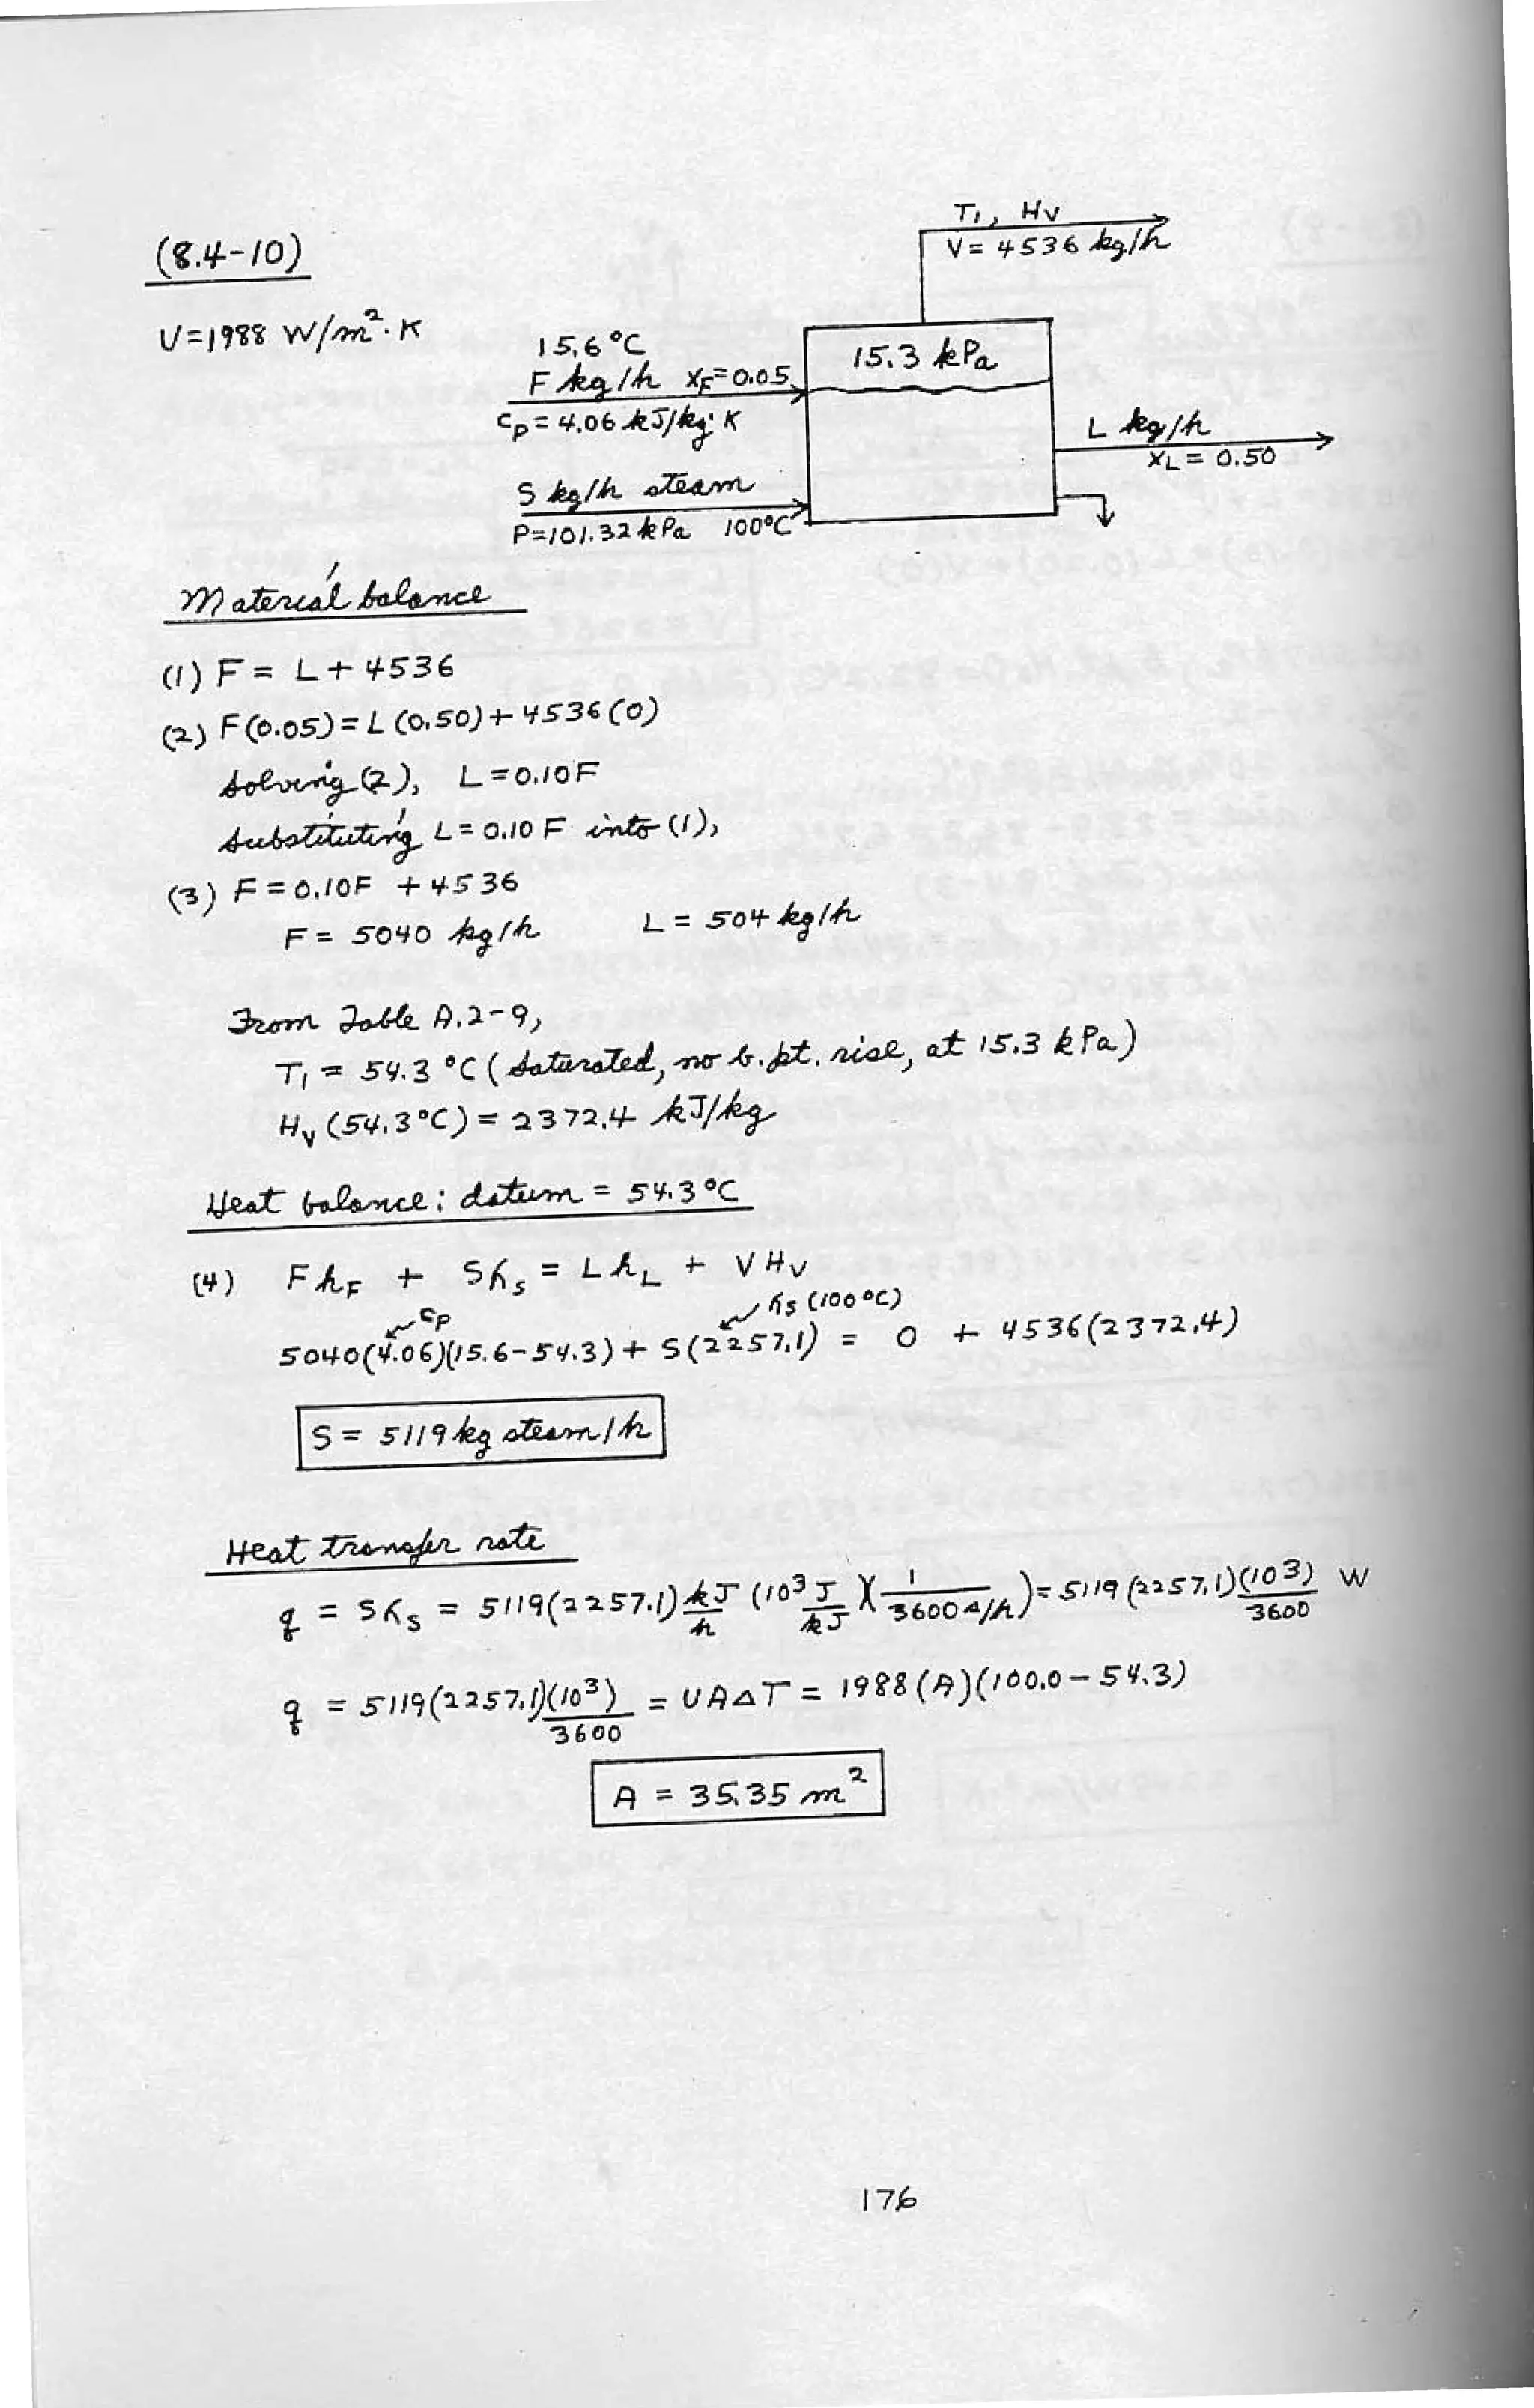 (8.4-10)
U=1988 W/m²·K
T₁, Hv
V= 4536 kg/h
15.6 °C
F kg/h x_F=0.05
c_p= 4.06 kJ/kg·K
15.3 kPa
L kg/h
x_L= 0.50
S kg/h steam
P=101.32 kPa 100°C
Material balance
(1) F = L + 4536
(2) F(0.05)= L (0.50)+ 4536(0)
Solving (2), L =0.10F
Substituting L = 0.10 F into (1),
(3) F = 0.10F + 4536
F = 5040 kg/h L = 504 kg/h
From Table A.2-9,
T₁ = 54.3 °C (saturated, no b.pt. rise, at 15.3 kPa)
H_v (54.3°C) = 2372.4 kJ/kg
Heat balance: datum = 54.3°C
(4) Fh_F + Sλ_s = Lh_L + VH_v
c_p λ_s (100°C)
5040(4.06)(15.6-54.3)+ S(2257.1) = 0 + 4536(2372.4)
S = 5119 kg steam/h
Heat transfer rate
q = Sλ_s = 5119(2257.1) kJ/h (10³ J/kJ)(1/3600 s/h)= 5119(2257.1)(10³)/3600 W
q = 5119(2257.1)(10³)/3600 = UAΔT = 1988(A)(100.0-54.3)
A = 35.35 m²
176